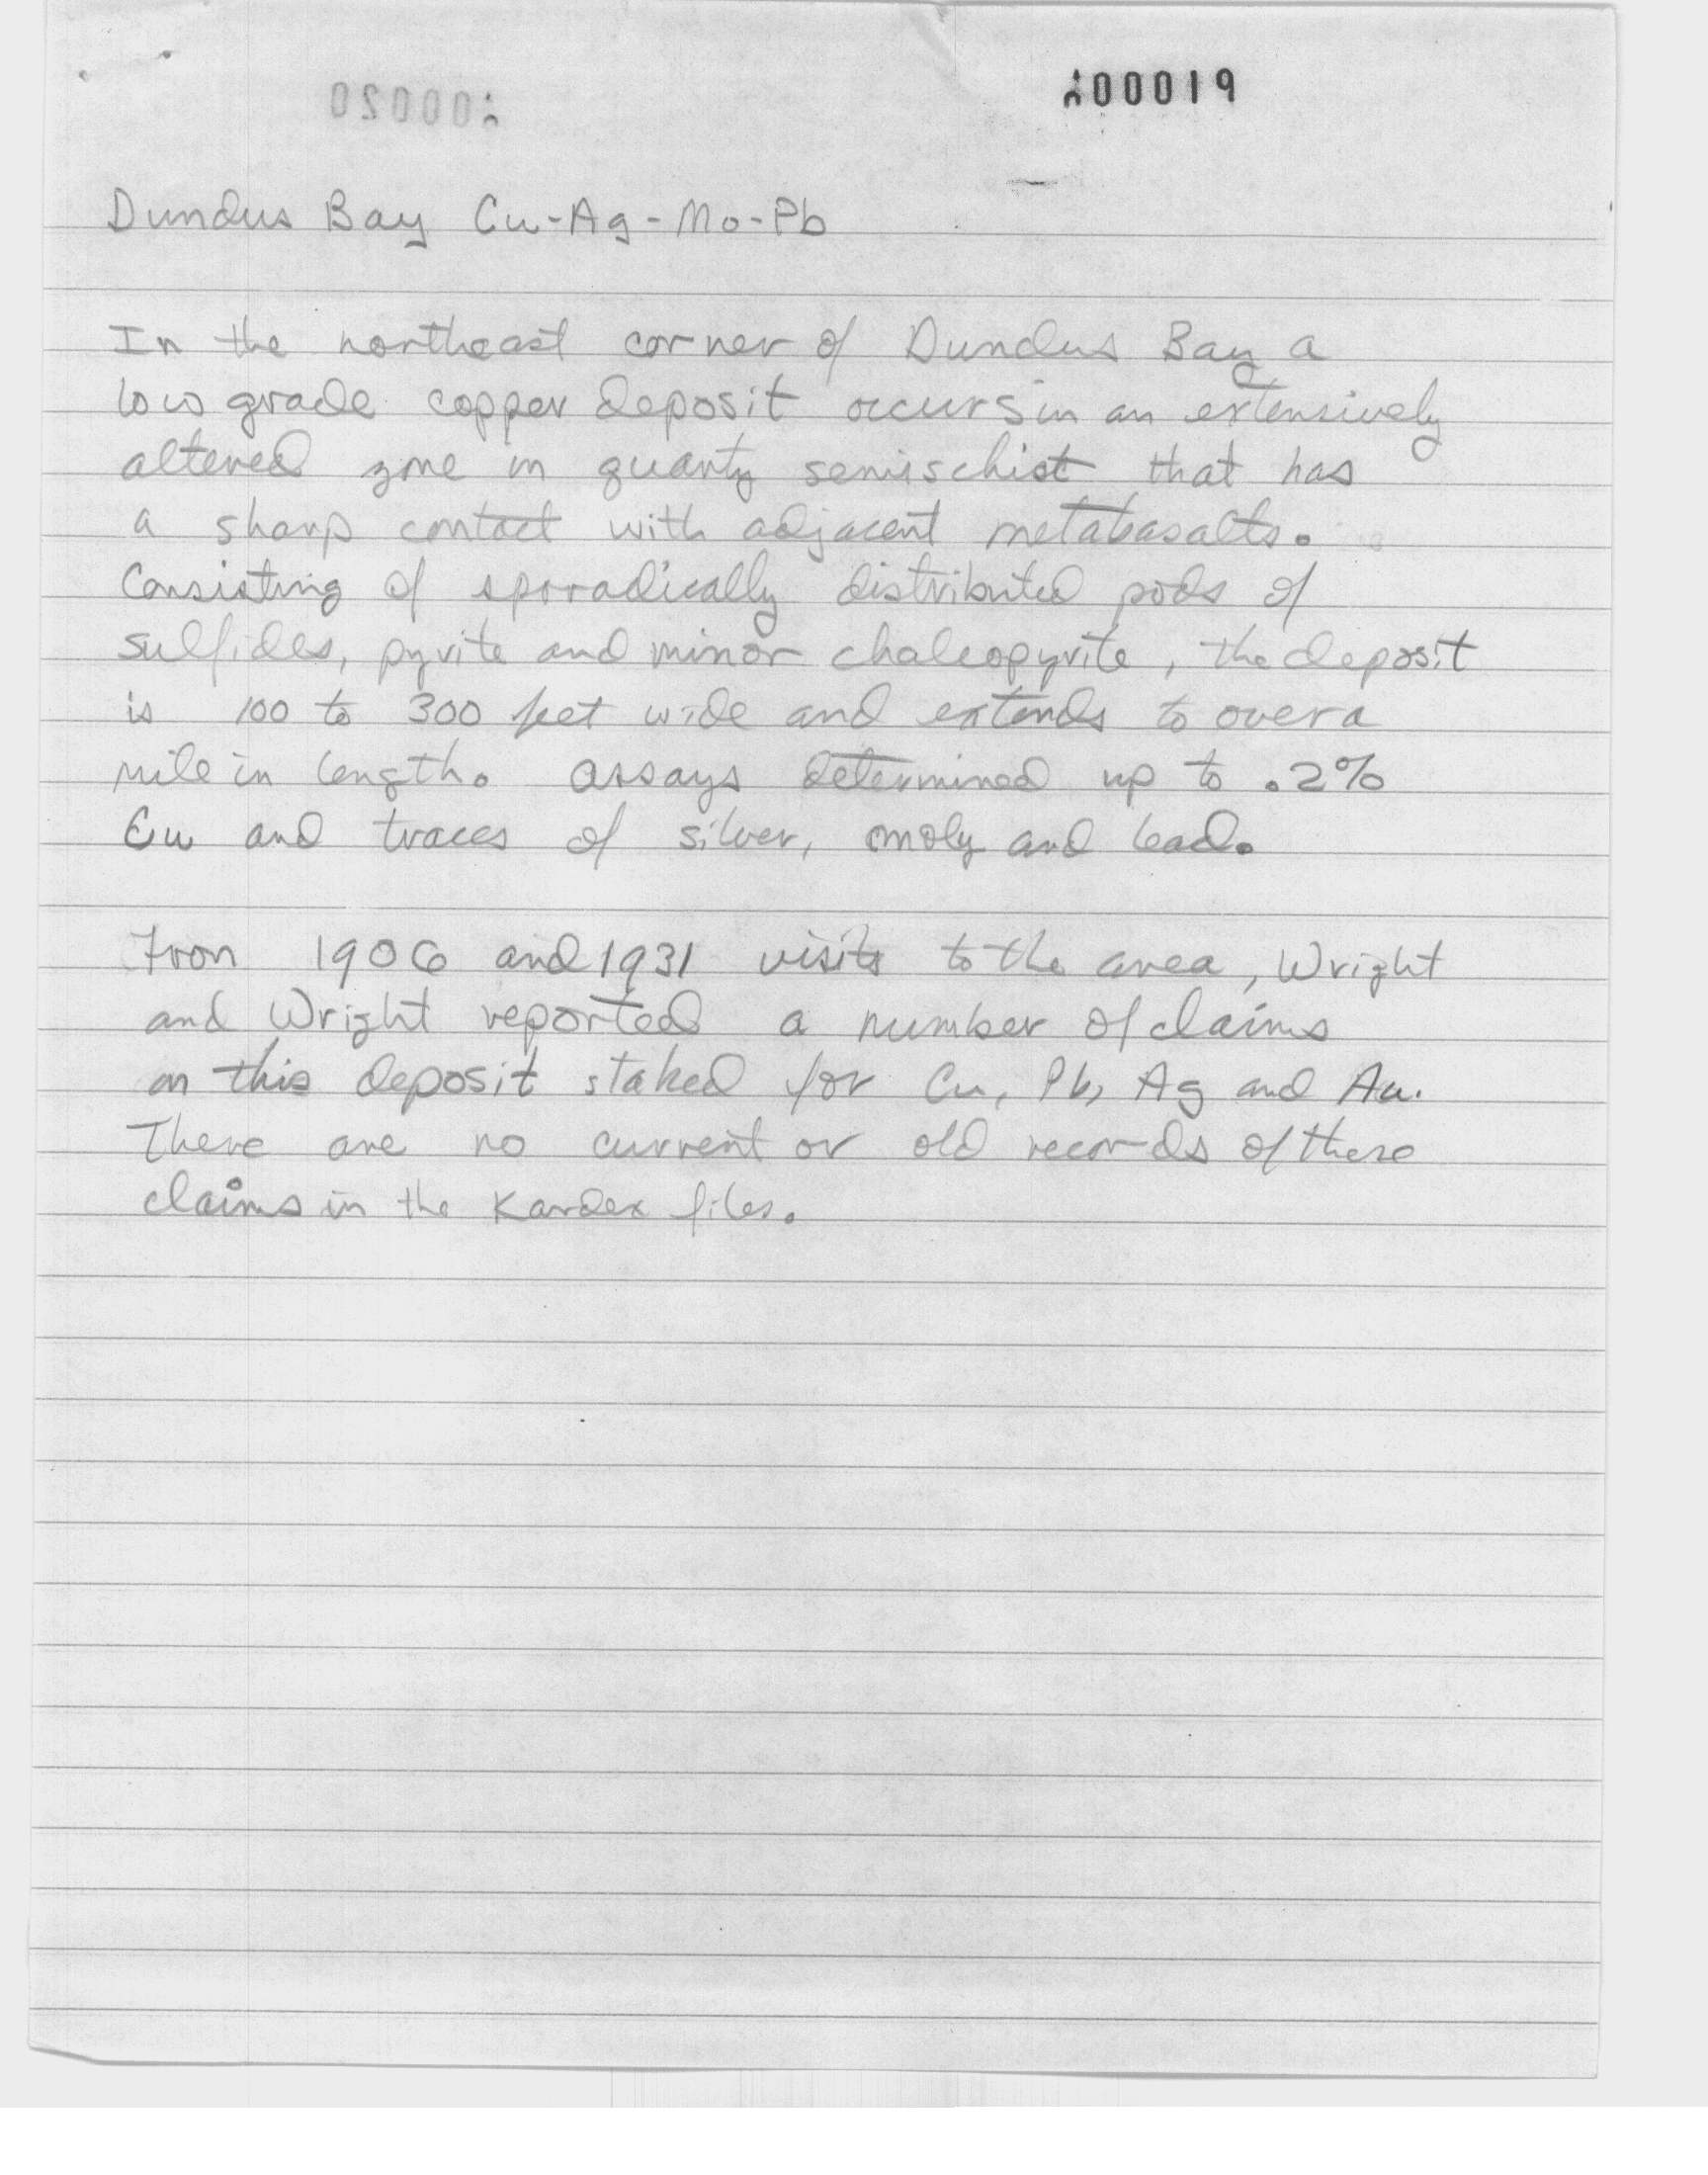 000019
Dundus Bay Cu-Ag-Mo-Pb
In the northeast corner of Dundus Bay a
low grade copper deposit occurs in an extensively
altered zone in quartz semischist that has
a sharp contact with adjacent metabasalts.
Consisting of sporadically distributed pods of
sulfides, pyrite and minor chalcopyrite, the deposit
is 100 to 300 feet wide and extends to over a
mile in length. assays determined up to .2%
Cu and traces of silver, moly and lead.
From 1906 and 1931 visits to the area, Wright
and Wright reported a number of claims
on this deposit staked for Cu, Pb, Ag and Au.
There are no current or old records of these
claims in the Kardex files.